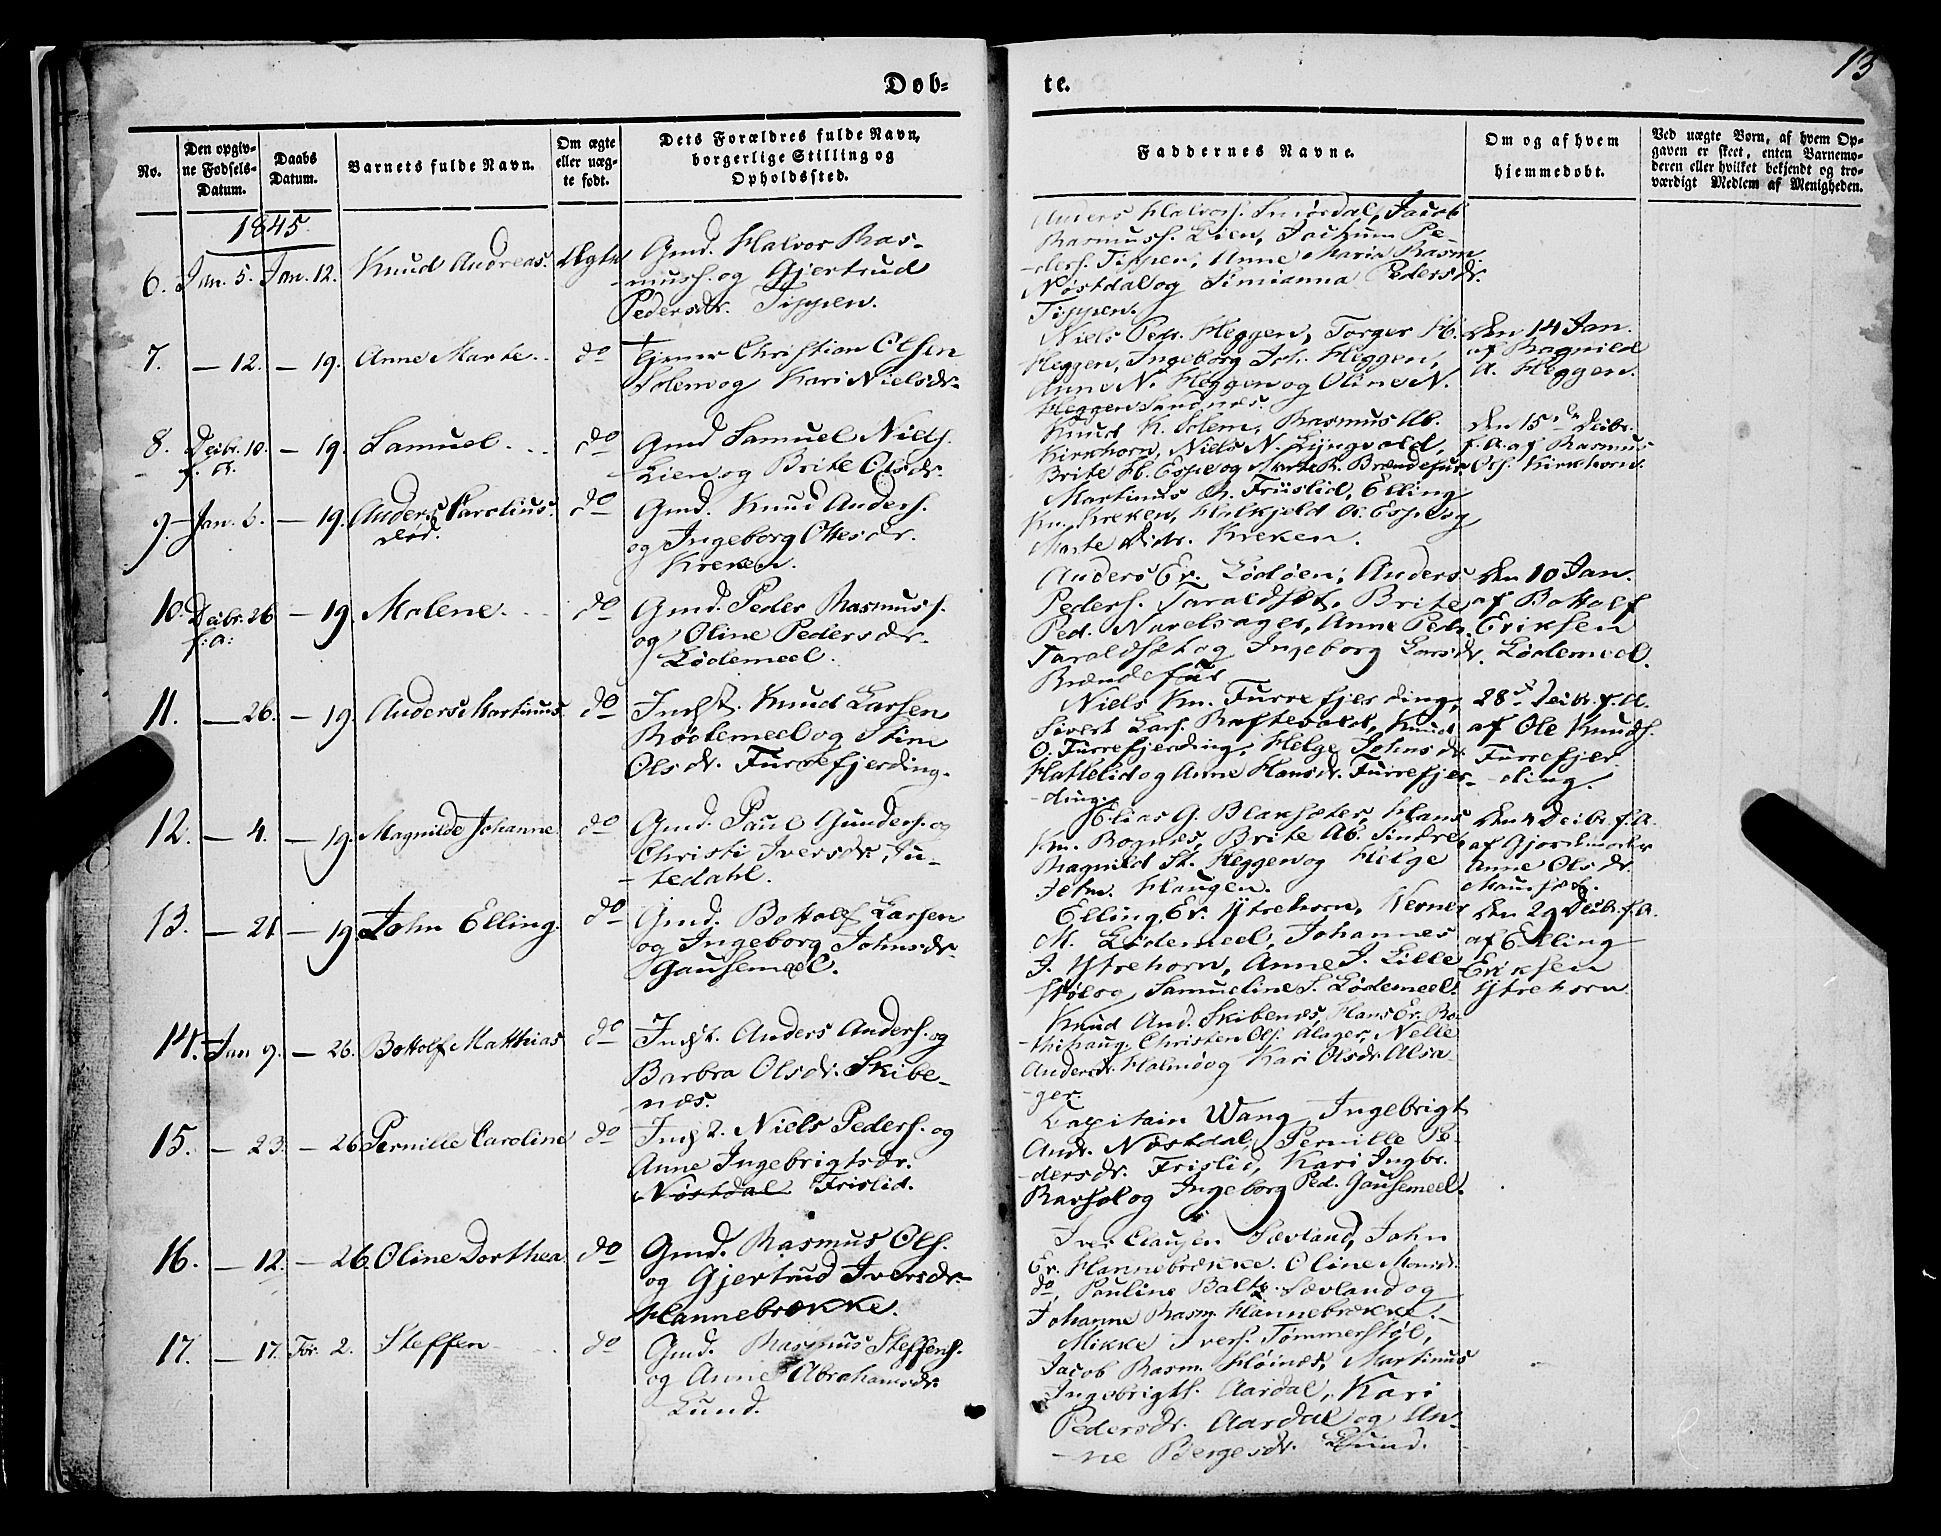 13
Døb-
te.
No.
Den opgiv-
ne Fødsels-
Datum.
Daabs
Datum.
Barnets fulde Navn.
Om ægte
eller uæg-
te født.
Dets Forældres fulde Navn,
borgerlige Stilling og
Opholdssted.
Faddernes Navne.
Om og af hvem
hjemmedøbt.
Ved uægte Børn, af hvem Op-
gaven er skeet, enten Barnemo-
deren eller hvilket bekjendt og tro-
værdigt Medlem af Menigheden.
1845.
6. Jan. 5. Jan. 12. Knud Andreas. Ægte
Gmd. Halvor Ras-
muss. og Gjertrud
Pedersdr. Tippen.
Anders Halvors. Smørdal, Jacob
Rasmuss. Lien, Jochum Pe-
-ders. Tippen, Anne Maria Rasm.
Nøstdal og Simianna Pedersdr.
Tippen.
7. — 12. — 19. Anne Marte. do
Tjener Christian Olsen
Solem og Kari Nielsdr.
Niels Ped. Heggen, Torger H.
Heggen, Ingeborg Joh. Heggen,
Anne N. Heggen og Oline N.
Heggen Sandnes.
Den 14 Jan.
af Ragnild
A. Heggen.
8. Decbr. 10. f. A. — 19. Samuel. do
Gmd Samuel Niels.
Lien og Brite Olsdr.
Knud K. Solem, Rasmus Ab.
Kirkhorn, Niels N. Lyngvold,
Brite H. Espe og Marte R. Brændefur
Den 15de Decbr.
f. A. af Rasmus
Ols. Kirkhorn.
9. Jan. 6. — 19. Anders Carolius. do
død.
Gmd. Knud Anders.
og Ingeborg Ottesdr.
Kreken.
Martinus Früslid, Elling
Kn. Kreken, Halkjeld O. Espe og
Marte Kreken.
10. Decbr. 26 f. A. — 19. Malene. do
Gmd. Peder Rasmuss.
og Oline Pedersdr.
Lødemeel.
Anders Er. Lødøen, Anders
Peders. Taraldset, Brite
Ped. Navelsager, Anne Ped.
Taraldset og Ingeborg Larsdr.
Brændefur
Den 10 Jan.
af Bottolf
Eriksen
Lødemeel.
11. — 26. — 19. Anders Martinus. do
Indst. Knud Larsen
Rødemeel og Stine
Olsdr. Furrefjerding.
Niels Kn. Furrefjerding,
Sivert Lars. Raftevold, Knud
O. Furrefjerding, Helge Johnsdr.
Hatlelid og Anne Hansdr. Furrefjer-
-ding.
28de Decbr. f. A.
af Ole Knuds.
Furrefjer
-ding.
12. — 4. — 19. Magnilde Johanne. do
Gmd. Paul Gunders. og
Christi Iversdr. Ju-
-tedahl.
Elias G. Blaksæter, Hans
Kn. Rognes, Brite Ab. Sindre,
Ragnild St. Heggen og Helge
John. Haugen.
Den Decbr. f. A.
af Gjordmoder
Anne Olsdr.
Maurset.
13. — 21 — 19 John Elling. do
Gmd. Bottolf Larsen
og Ingeborg Johnsdr.
Gausemeel.
Elling Er. Ytrehorn, Verner
M. Lødemeel, Johannes
J. Ytrehorn, Anne J. Lille
støl og Samueline S. Lødemeel.
Den 29 Decbr. f. A.
af Elling
Eriksen
Ytrehorn.
14. Jan 9. — 26. Bottolf Matthias do
Indst. Anders Anders. og
Barbra Olsdr. Skibe-
-næs.
Knud And. Skibenæs, Hans Er. Bo-
-thihaug, Christen Ols. Alsager, Nelle
Andersdr. Holmø og Kari Olsdr. Alsa
-ger.
15. — 23. — 26 Pernille Caroline do
Indst. Niels Peders. og
Anne Ingebrigtsdr.
Nøstdal Frislid.
Capitain Wang, Ingebrigt
Andr. Nøstdal, Pernille Pe-
dersdr. Frislid, Kari Ingbr.
Ravhol og Ingeborg Ped. Gausemeel.
16. — 12. — 26 Oline Dorthea do
Gmd. Rasmus Ols.
og Gjertrud Iversdr.
Hannebrække.
Iver Clausen Sævland, John
Er. Hannebrække. Oline Mons.
do, Pauline Balts. Sævland og
Johanne Rasm. Hannebrække.
17. — 17. Febr. 2. Steffen do
Gmd. Rasmus Steffens.
og Anne Abrahamsdr.
Lund.
Mikke Ivers. Tømmerstøl,
Jacob Rasm. Høinæs, Martinus
Ingebrigts. Aardal, Kari
Pedersdr. Aardal og An-
-ne Bergesdr. Lund.